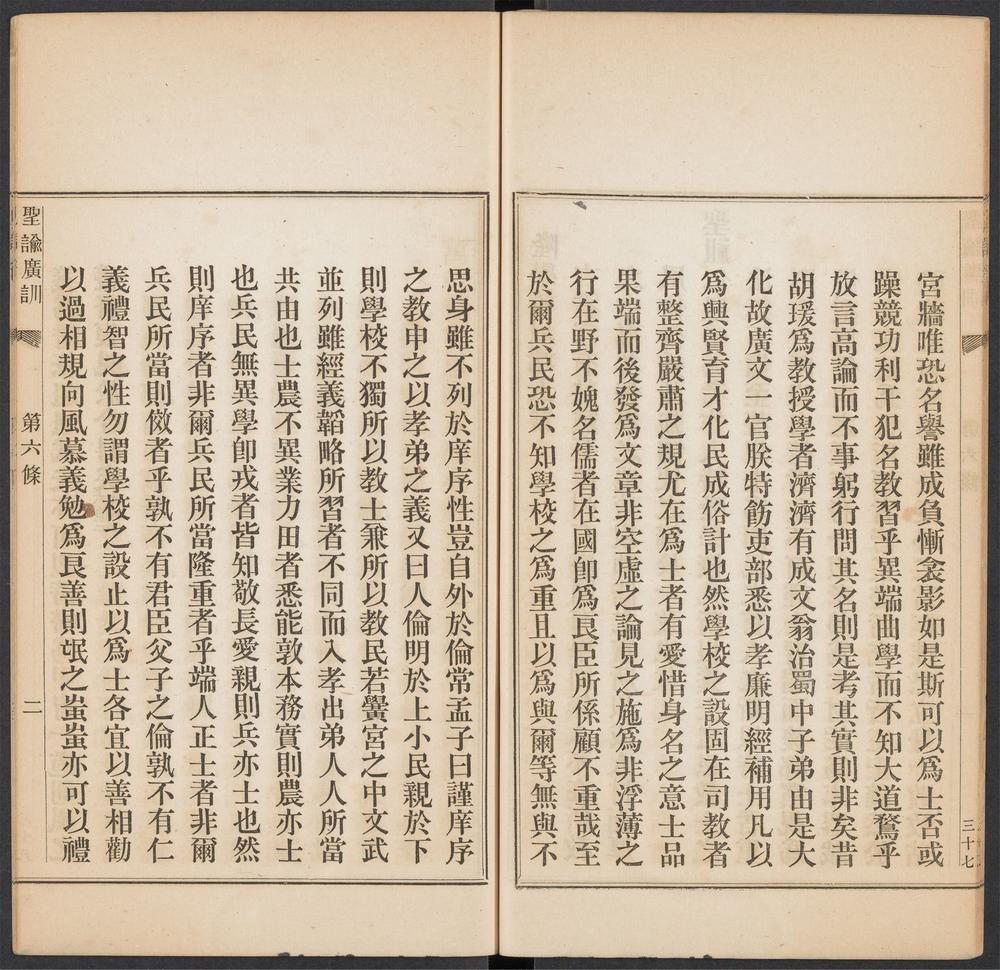 宮牆唯恐名譽雖成負慚衾影如是斯可以爲士否或
躁競功利干犯名教習乎異端曲學而不知大道騖乎
放言高論而不事躬行問其名則是考其實則非矣昔
胡瑗爲教授學者濟濟有成文翁治蜀中子弟由是大
化故廣文一官朕特飭吏部悉以孝廉明經補用凡以
爲興賢育才化民成俗計也然學校之設固在司教者
有整齊嚴肅之規尤在爲士者有愛惜身名之意士品
果端而後發爲文章非空虛之論見之施爲非浮薄之
行在野不媿名儒者在國卽爲良臣所係顧不重哉至
於爾兵民恐不知學校之爲重且以爲與爾等無與不
三十七
思身雖不列於庠序性豈自外於倫常孟子曰謹庠序
之教申之以孝弟之義又曰人倫明於上小民親於下
則學校不獨所以教士兼所以教民若黌宮之中文武
並列雖經義韜略所習者不同而入孝出弟人人所當
共由也士農不異業力田者悉能敦本務實則農亦士
也兵民無異學卽戎者皆知敬長愛親則兵亦士也然
則庠序者非爾兵民所當隆重者乎端人正士者非爾
兵民所當則傚者乎孰不有君臣父子之倫孰不有仁
義禮智之性勿謂學校之設止以爲士各宜以善相勸
以過相規向風慕義勉爲良善則氓之蚩蚩亦可以禮
聖諭廣訓 第六條 二